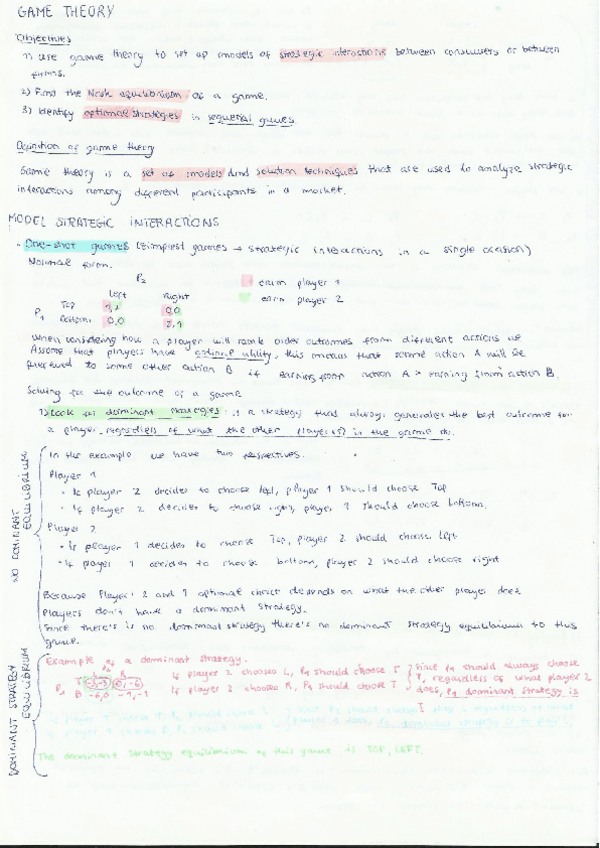 GAME THEORY
Objectives
1) Use game theory to set up models of strategic interactions between consumers or between
firms.
2) Find the Nash equilibrium of a game.
3) Identify optimal strategies in sequential games.
Definition of game theory
Game theory is a set of models and solution techniques that are used to analyze strategic
interactions among different participants in a market.
MODEL STRATEGIC INTERACTIONS
One-shot games (simplest games → strategic interactions in a single occasion)
Normal form.
P2
earn player 1
Left Right
earn player 2
P1 Top 0,0
Bottom 0,0
When considering how a player will rank order outcomes from different actions we
Assume that players have utility, this means that some action A will be
preferred to some other action B if earning from action A > earning from action B.
Solving for the outcome of a game
1) Look for dominant strategies is a strategy that always generates the best outcome for
a player, regardless of what the other player(s) in the game do.
NO DOMINANT EQUILIBRIUM
In the example we have two perspectives.
Player 1
• If player 2 decides to choose left, player 1 should choose Top
• If player 2 decides to choose right, player 1 should choose bottom.
Player 2
• If player 1 decides to choose Top, player 2 should choose left
• If player 1 decides to choose bottom, player 2 should choose right
Because Player 2 and 1 optimal choice depends on what the other player does
Players don't have a dominant strategy.
Since there's is no dominant strategy there's no dominant strategy equilibrium to this
game.
DOMINANT STRATEGY EQUILIBRIUM
Example of a dominant strategy.
If player 2 chooses L, P1 should choose T Since P1 should always choose
P1 T If player 2 chooses R, P1 should choose T T, regardless of what player 2
B does, P1 dominant strategy is
T
The dominant strategy equilibrium of this game is TOP, LEFT.